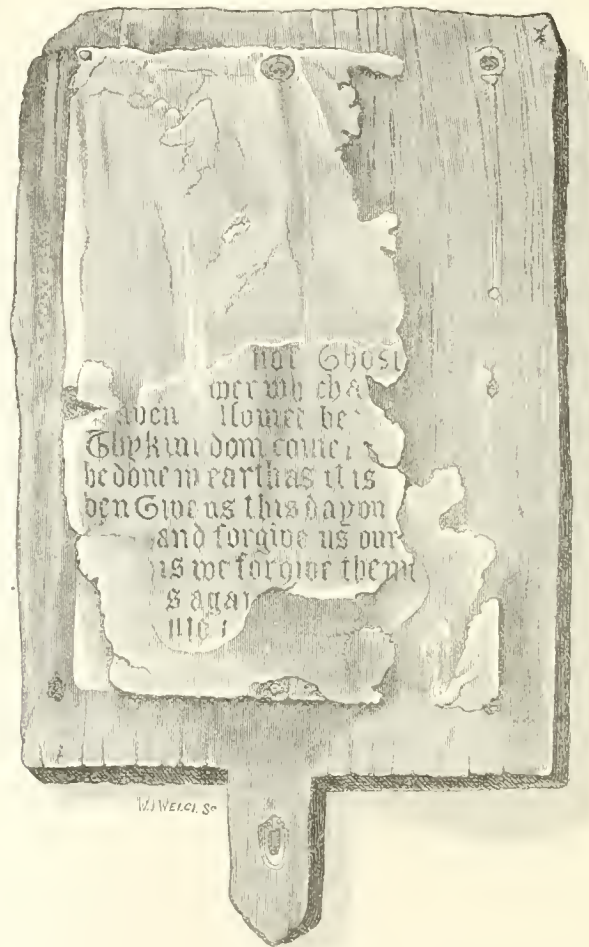 Ghost
wer wh cha
aven
Thy kin dom come
be done in earth as it is
ven Give us this day ou
and forgive us our
as we forgive them
s agai
W.J WELCH. Sc